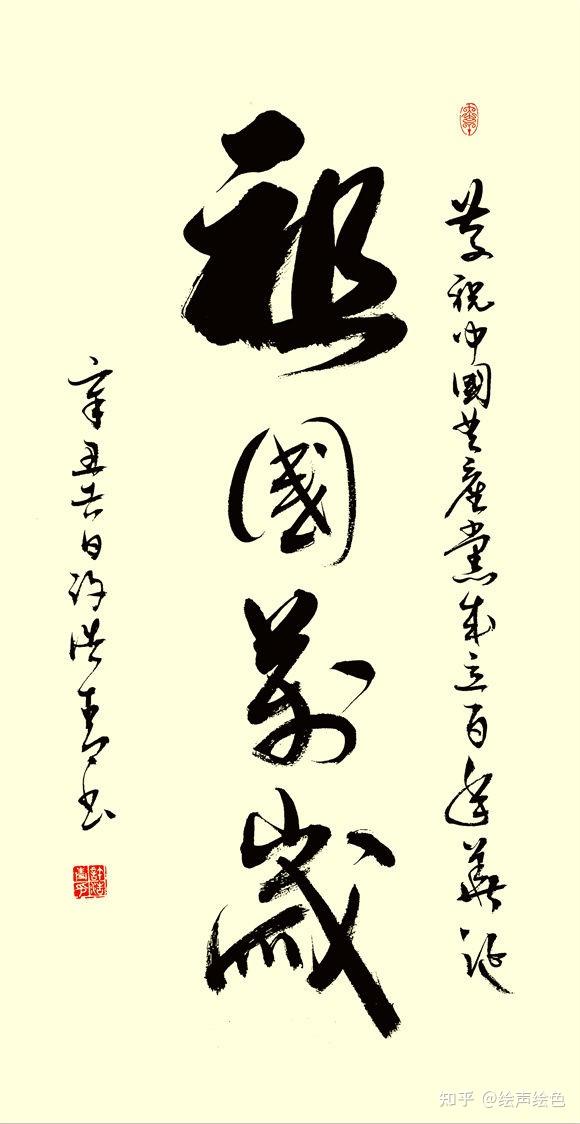 祝中國共產黨成立百年華誕
祖國萬歲
辛丑吉日許洪青書
知乎 @绘声绘色